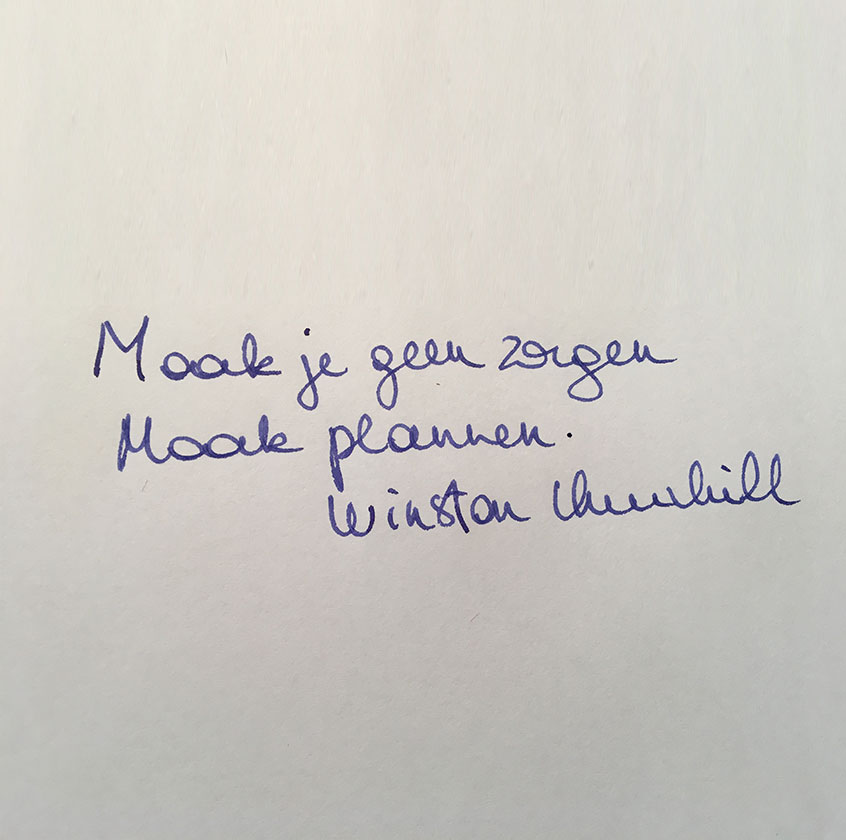 Maak je geen zorgen
Maak plannen.
Winston Churchill